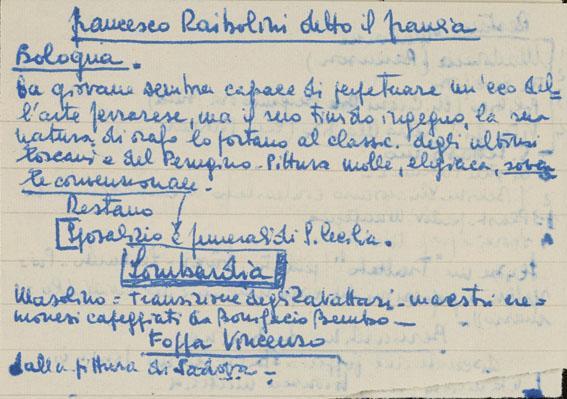 Francesco Raibolini detto il Francia
Bologna.
Da giovane sembra capace di perpetuare un'eco del-
l'arte ferrarese, ma il suo timido ingegno, la sua
natura di orafo lo portano al classic. degli ultimi
toscani e del Perugino. Pittura molle, elegiaca,
convenzionale.
Restano
Sposalizio e funerali di S. Cecilia.
Lombardia
Masolino = transizione degli Zavattari - maestri cre-
monesi capeggiati da Bonifacio Bembo -
Foppa Vincenzo
dalla pittura di Padova -